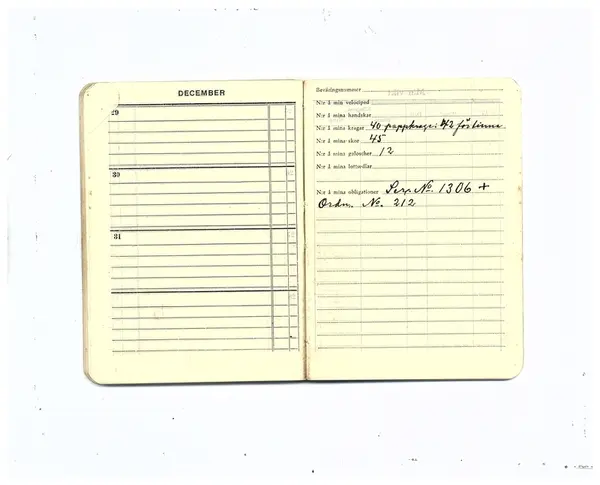 DECEMBER
29
30
31
Bevakningsnummer
N:r å min velociped
N:r å mina handskar
N:r å mina kragar 40 pappkrage: 42 för linne
N:r å mina skor 45
N:r å mina galoscher 12
N:r å mina lottsedlar
N:r å mina obligationer Ser. No. 1306 +
Ordn. No. 212